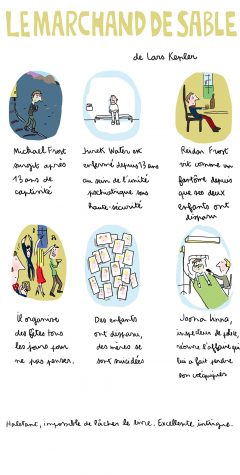 LE MARCHAND DE SABLE
de Lars Kepler
Michael Frost
surgit après
13 ans de
captivité
Jurek Walter est
enfermé depuis 13 ans
au sein de l'unité
psychiatrique sous
haute-sécurité
Reidar Frost
vit comme un
fantôme depuis
que ses deux
enfants ont
disparu
Il organise
des fêtes tous
les jours pour
ne pas penser.
Des enfants
ont disparu,
des mères se
sont suicidées
Joona Linna,
inspecteur de police,
réouvre l'affaire qui
lui a fait perdre
son coéquipier
Haletant, impossible de lâcher le livre. Excellente intrigue.